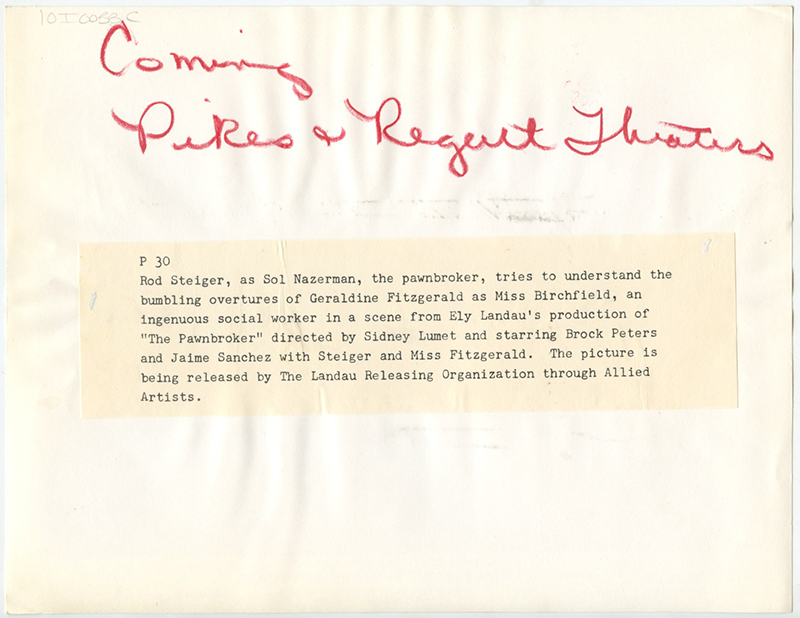 10I0058C
Coming
Pikes & Regent Theaters
P 30
Rod Steiger, as Sol Nazerman, the pawnbroker, tries to understand the
bumbling overtures of Geraldine Fitzgerald as Miss Birchfield, an
ingenuous social worker in a scene from Ely Landau's production of
"The Pawnbroker" directed by Sidney Lumet and starring Brock Peters
and Jaime Sanchez with Steiger and Miss Fitzgerald. The picture is
being released by The Landau Releasing Organization through Allied
Artists.